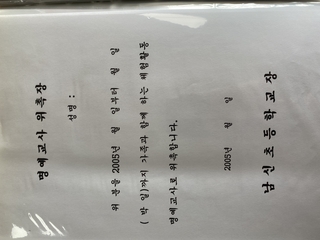 명예교사 위촉장
성명 :
위 분을 2005년 월 일부터 월 일
( 박 일)까지 가족과 함께 하는 체험활동
명예교사로 위촉합니다.
2005년 월 일
남신초등학교장